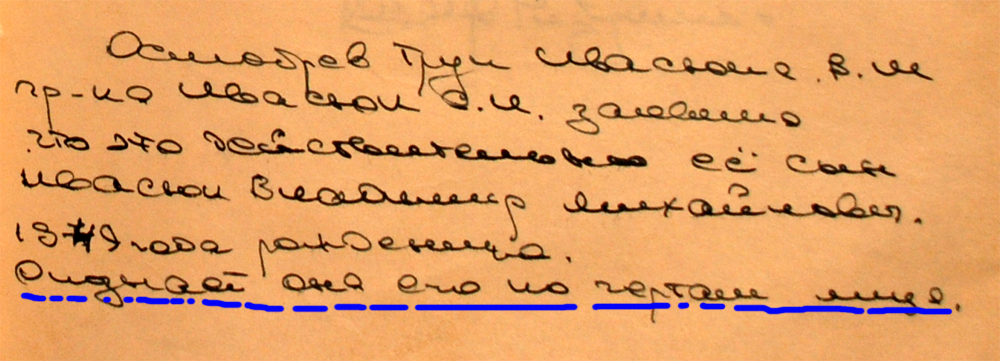 Осмотрев труп Ивасюка В.М
гр-ка Ивасюк С.И. заявила
что это действительно её сын
Ивасюк Владимир Михайлович.
1949 года рождения.
Опознает она его по чертам лица.